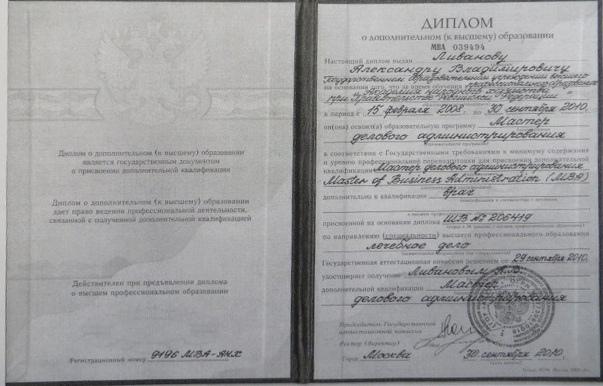 Диплом о дополнительном (к высшему) образовании
является государственным документом
о присвоении дополнительной квалификации
Диплом о дополнительном (к высшему) образовании
дает право ведения профессиональной деятельности,
связанной с полученной дополнительной квалификацией
Действителен при предъявлении диплома
о высшем профессиональном образовании
Регистрационный номер 9196 МВА-АНХ
ДИПЛОМ
о дополнительном (к высшему) образовании
МВА 039494
Настоящий диплом выдан Ливанову
Александру Владимировичу
Государственном образовательном учреждении высшего
на основании того, что за время обучения профессионального образования
"Академия народного хозяйства
при Правительстве Российской Федерации"
в период с 15 февраля 2008. по 30 сентября 2010.
он(она) освоил(а) образовательную программу Мастер
делового администрирования
в соответствии с Государственными требованиями к минимуму содержания
и уровню профессиональной переподготовки для присвоения дополнительной
квалификации Мастер делового администрирования
Master of Business Administration (MBA)
дополнительно к квалификации врач
присвоенной на основании диплома ШВ № 206419
по направлению (специальности) высшего профессионального образования
лечебное дело
Государственная аттестационная комиссия решением от 29 сентября 2010.
удостоверяет получение Ливановым А.В.
дополнительной квалификации Мастер
делового администрирования
Председатель Государственной
аттестационной комиссии
Ректор (директор)
Город Москва 30 сентября 2010.